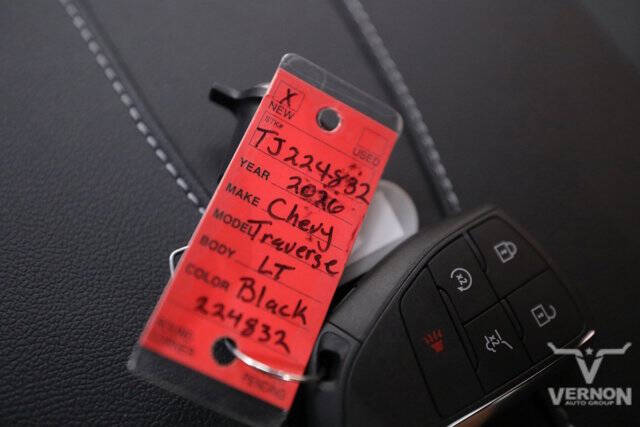 X
NEW
USED
STK#
TJ224832
YEAR 2026
MAKE Chevy
MODEL Traverse
BODY LT
COLOR Black
224832
x2
x2
VERNON
AUTO GROUP